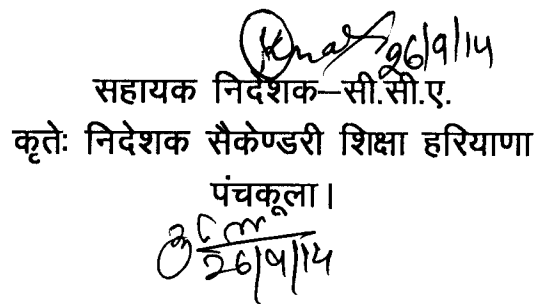 26/9/14
सहायक निदेशक–सी.सी.ए.
कृतेः निदेशक सैकेण्डरी शिक्षा हरियाणा
पंचकूला।
26/9/14